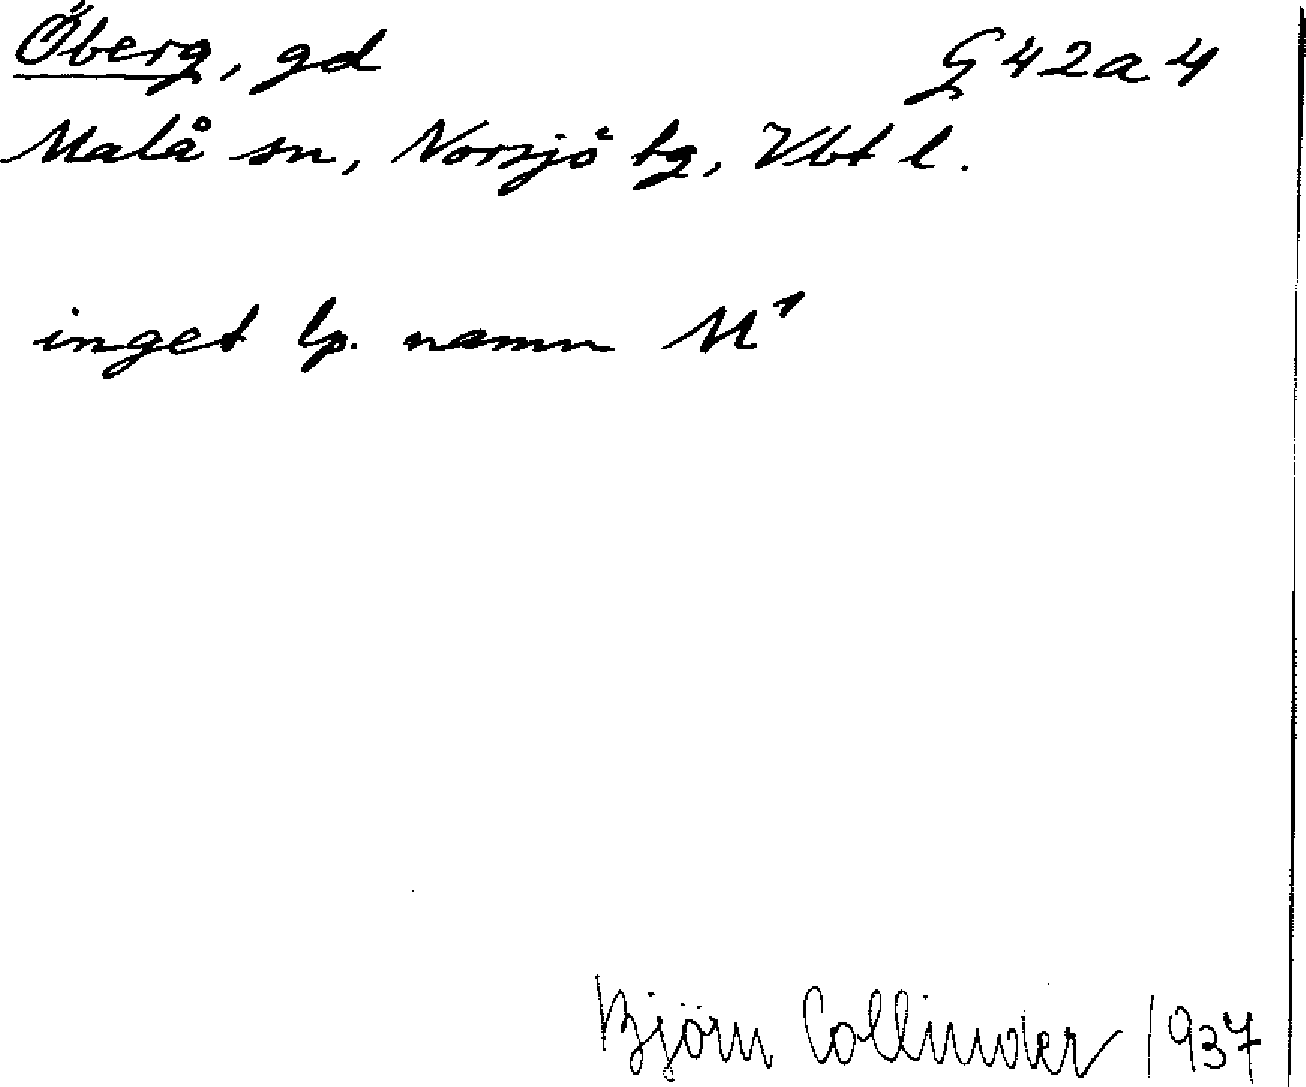 Öberg, gd G 42a 4
Malå sn, Norsjö tg, Vbt l.
inget lp. namn M¹
Björn Collinder 1937